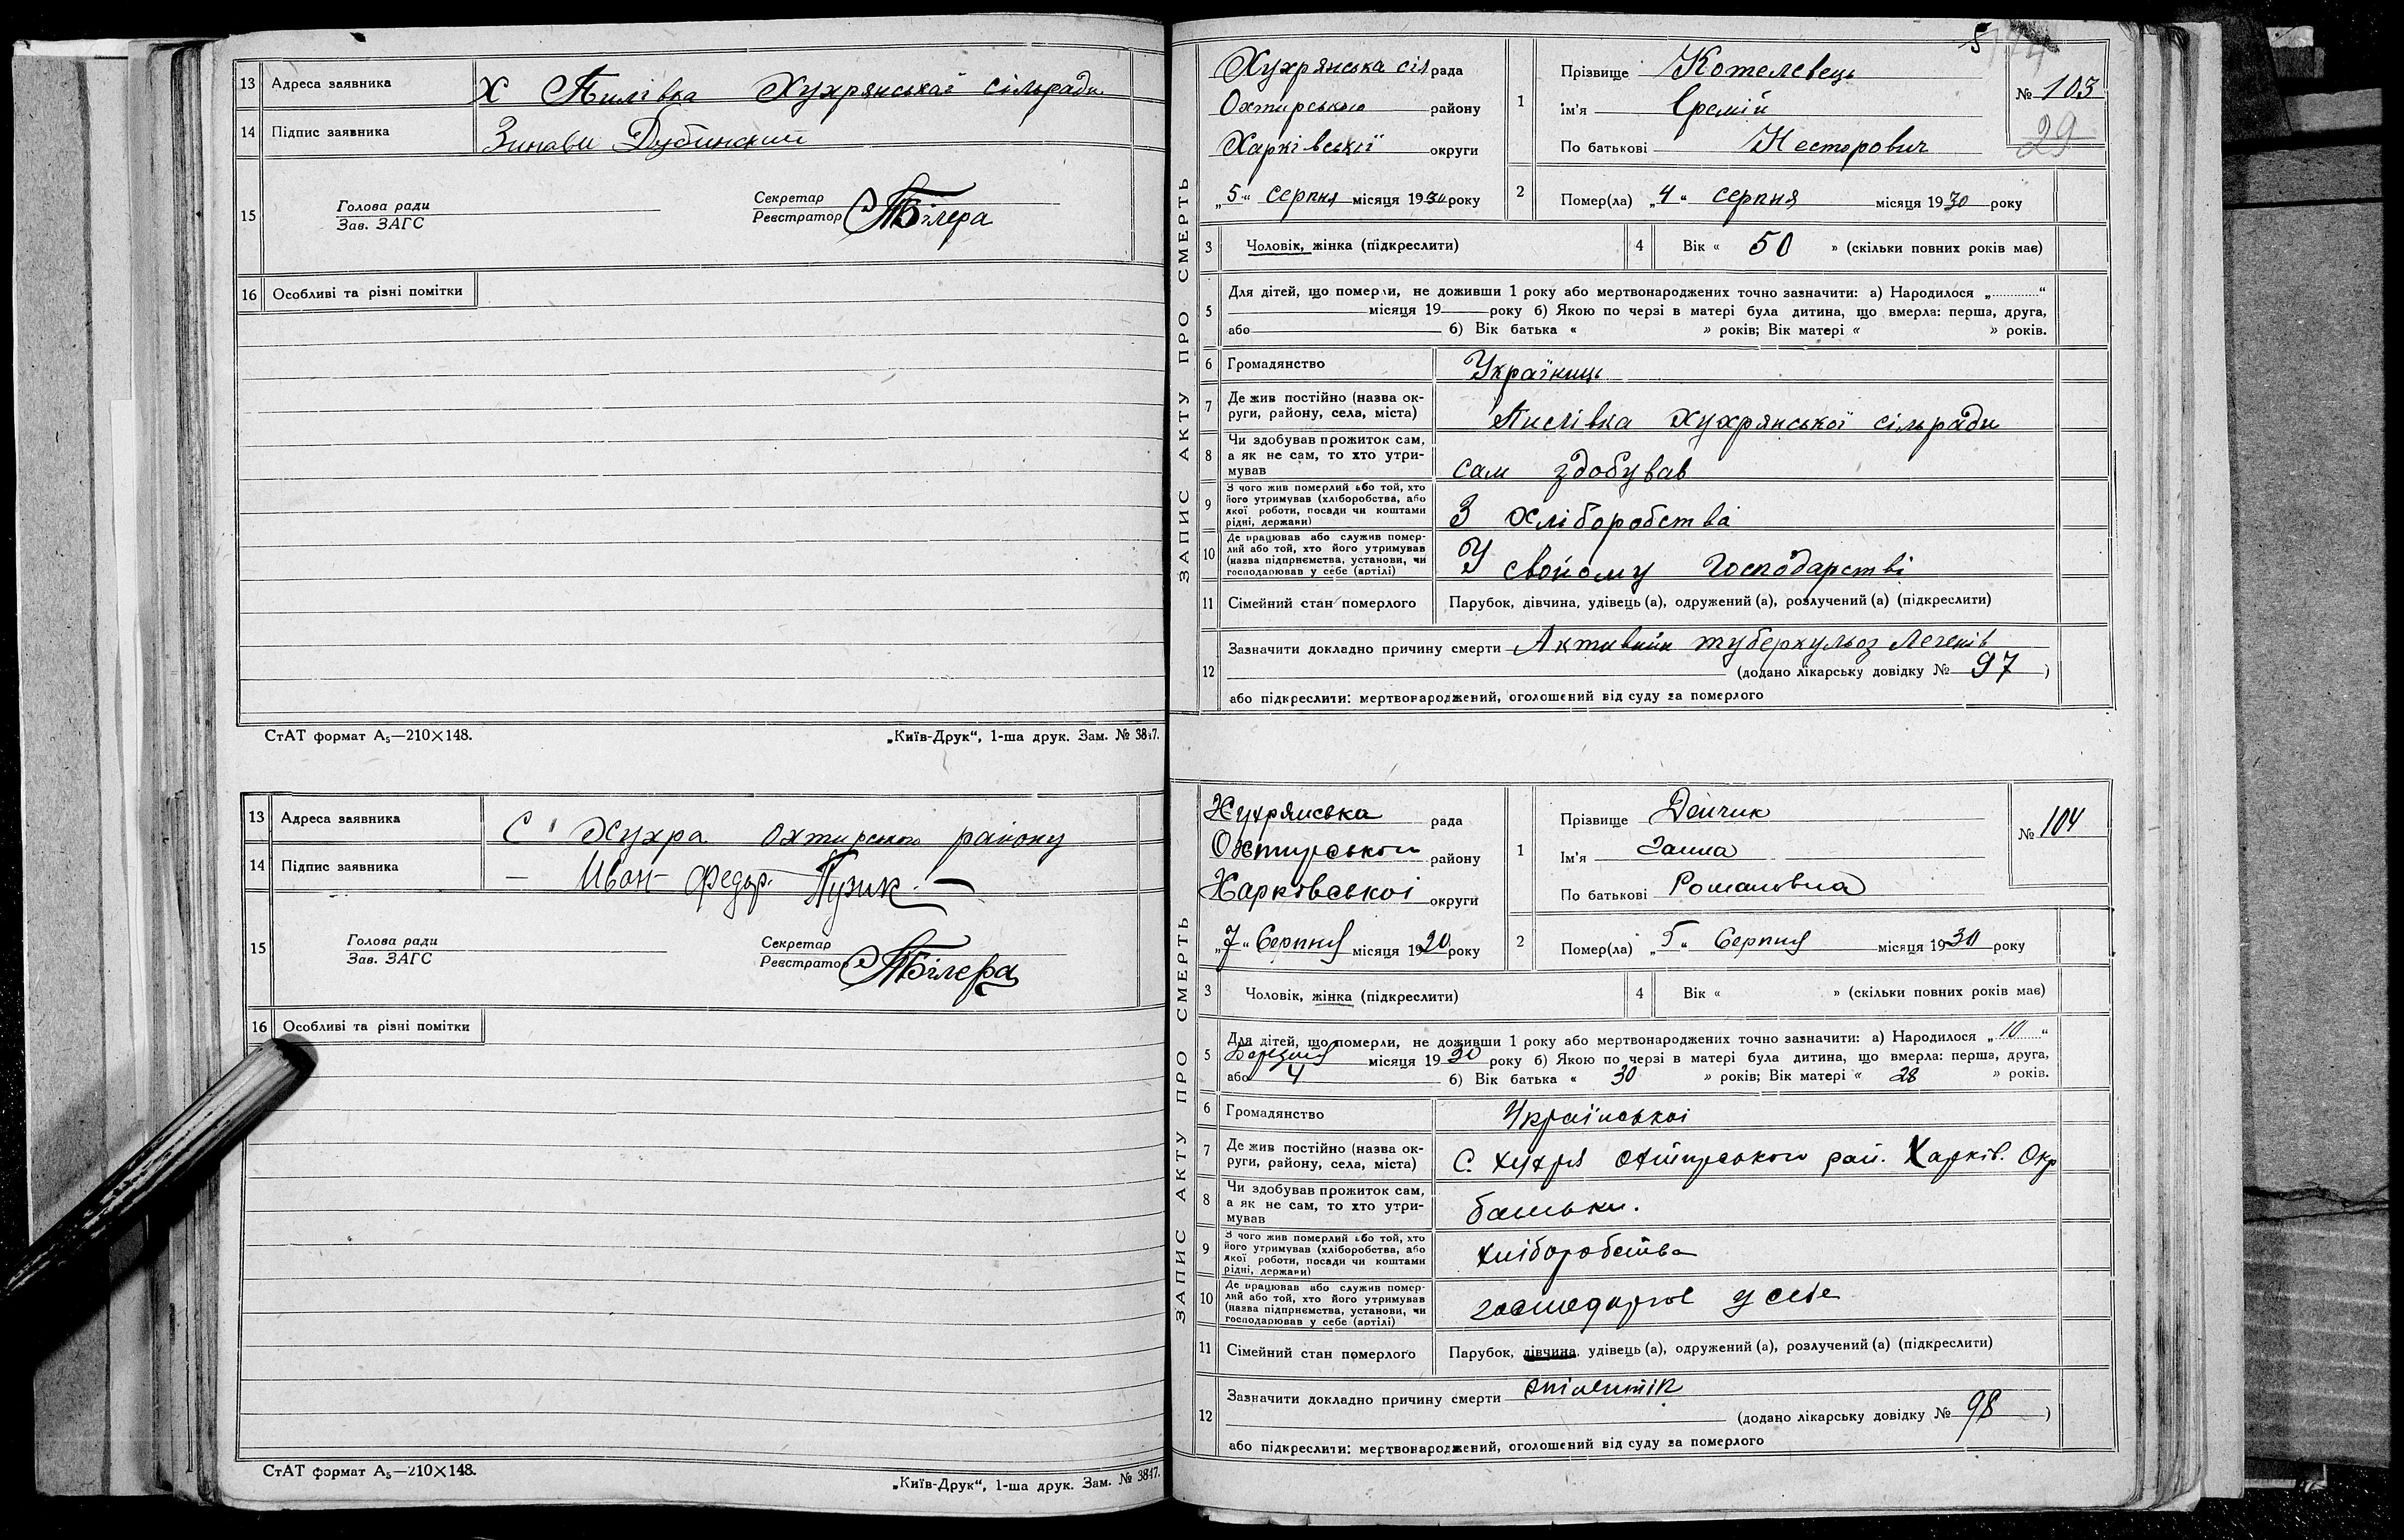 13 Адреса заявника Х Пилівка Хухрянської сільради
14 Підпис заявника Зинови Дубинский
15 Голова ради
Зав. ЗАГС
Секретар
Реєстратор Білера
16 Особливі та різні помітки
СтАТ формат А₅—210×148. „Київ-Друк“, 1-ша друк. Зам. № 3847.
13 Адреса заявника С Хухра Охтирського району
14 Підпис заявника — Иван Федор. Пузик. —
15 Голова ради
Зав. ЗАГС
Секретар
Реєстратор Білера
16 Особливі та різні помітки
СтАТ формат А₅—210×148. „Київ-Друк“, 1-ша друк. Зам. № 3847.
ЗАПИС АКТУ ПРО СМЕРТЬ
Хухрянська сіл рада
Охтирського району
Харківської округи
„5“ серпня місяця 1930 року
1 Прізвище Котелевець
ім'я Єремій
По батькові Несторович
№ 103
29
2 Помер(ла) „4“ серпня місяця 1930 року
3 Чоловік, жінка (підкреслити)
4 Вік « 50 » (скільки повних років має)
5 Для дітей, що померли, не доживши 1 року або мертвонароджених точно зазначити: а) Народилося „ “
місяця 19 року б) Якою по черзі в матері була дитина, що вмерла: перша, друга,
або б) Вік батька « » років; Вік матері « » років.
6 Громадянство Україниць
7 Де жив постійно (назва ок-
руги, району, села, міста) Пилівка Хухрянської сільради
8 Чи здобував прожиток сам,
а як не сам, то хто утри-
мував сам здобував
9 З чого жив померлий або той, хто
його утримував (хліборобства, або
якої роботи, посади чи коштами
рідні, держави) З хліборобства
10 Де працював або служив помер-
лий або той, хто його утримував
(назва підприємства, установи, чи
господарював у себе (артілі) У свойому господарстві
11 Сімейний стан померлого Парубок, дівчина, удівець (а), одружений (а), розлучений (а) (підкреслити)
12 Зазначити докладно причину смерти Активний туберкульоз Легенів
(додано лікарську довідку № 97 )
або підкреслити: мертвонароджений, оголошений від суду за померлого
ЗАПИС АКТУ ПРО СМЕРТЬ
Хухрянська рада
Охтирського району
Харковської округи
„7“ Серпня місяця 1920 року
1 Прізвище Дейчик
Ім'я Ганна
По батькові Романовна
№ 104
2 Помер(ла) „ “ Серпня місяця 1930 року
3 Чоловік, жінка (підкреслити)
4 Вік « » (скільки повних років має)
5 Для дітей, що померли, не доживши 1 року або мертвонароджених точно зазначити: а) Народилося „10“
Березня місяця 1930 року б) Якою по черзі в матері була дитина, що вмерла: перша, друга,
або 4 б) Вік батька « 30 » років; Вік матері « 28 » років.
6 Громадянство Української
7 Де жив постійно (назва ок-
руги, району, села, міста) С. Хухря Охтирського рай. Харків. Окр
8 Чи здобував прожиток сам,
а як не сам, то хто утри-
мував батьки.
9 З чого жив померлий або той, хто
його утримував (хліборобства, або
якої роботи, посади чи коштами
рідні, держави) хліборобства
10 Де працював або служив помер-
лий або той, хто його утримував
(назва підприємства, установи, чи
господарював у себе (артілі) у себе
11 Сімейний стан померлого Парубок, дівчина, удівець (а), одружений (а), розлучений (а) (підкреслити)
12 Зазначити докладно причину смерти
(додано лікарську довідку № 98 )
або підкреслити: мертвонароджений, оголошений від суду за померлого